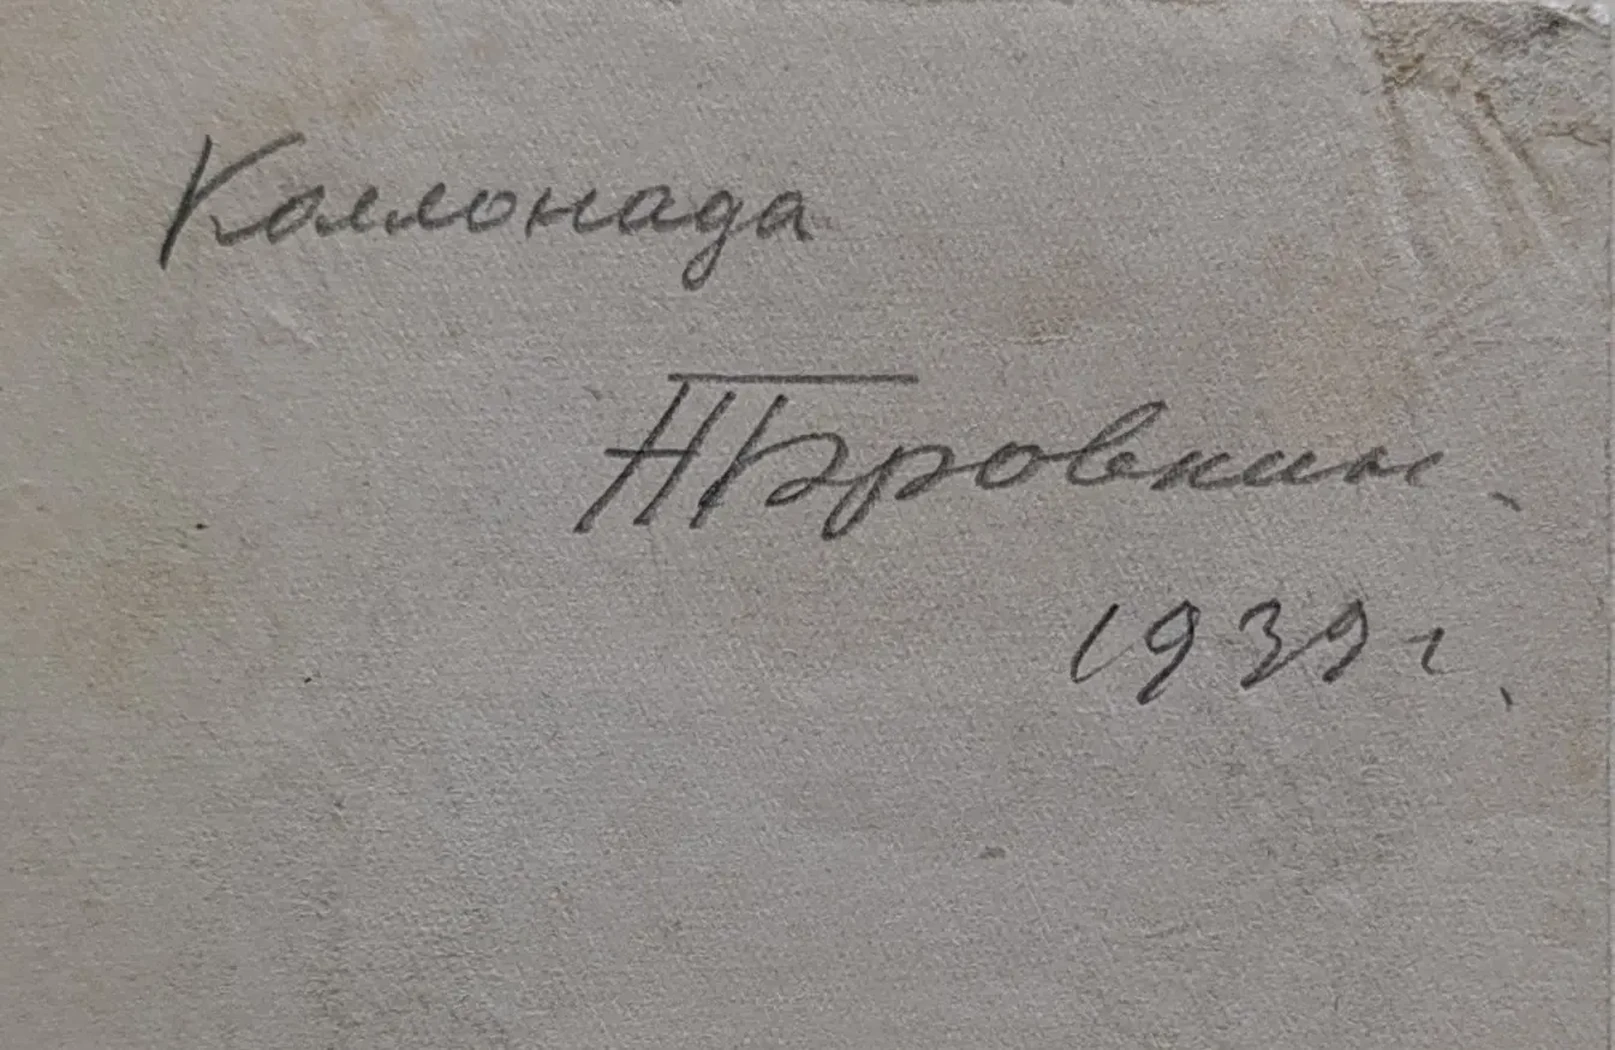 Коллонада
НБровкин.
1939 г.